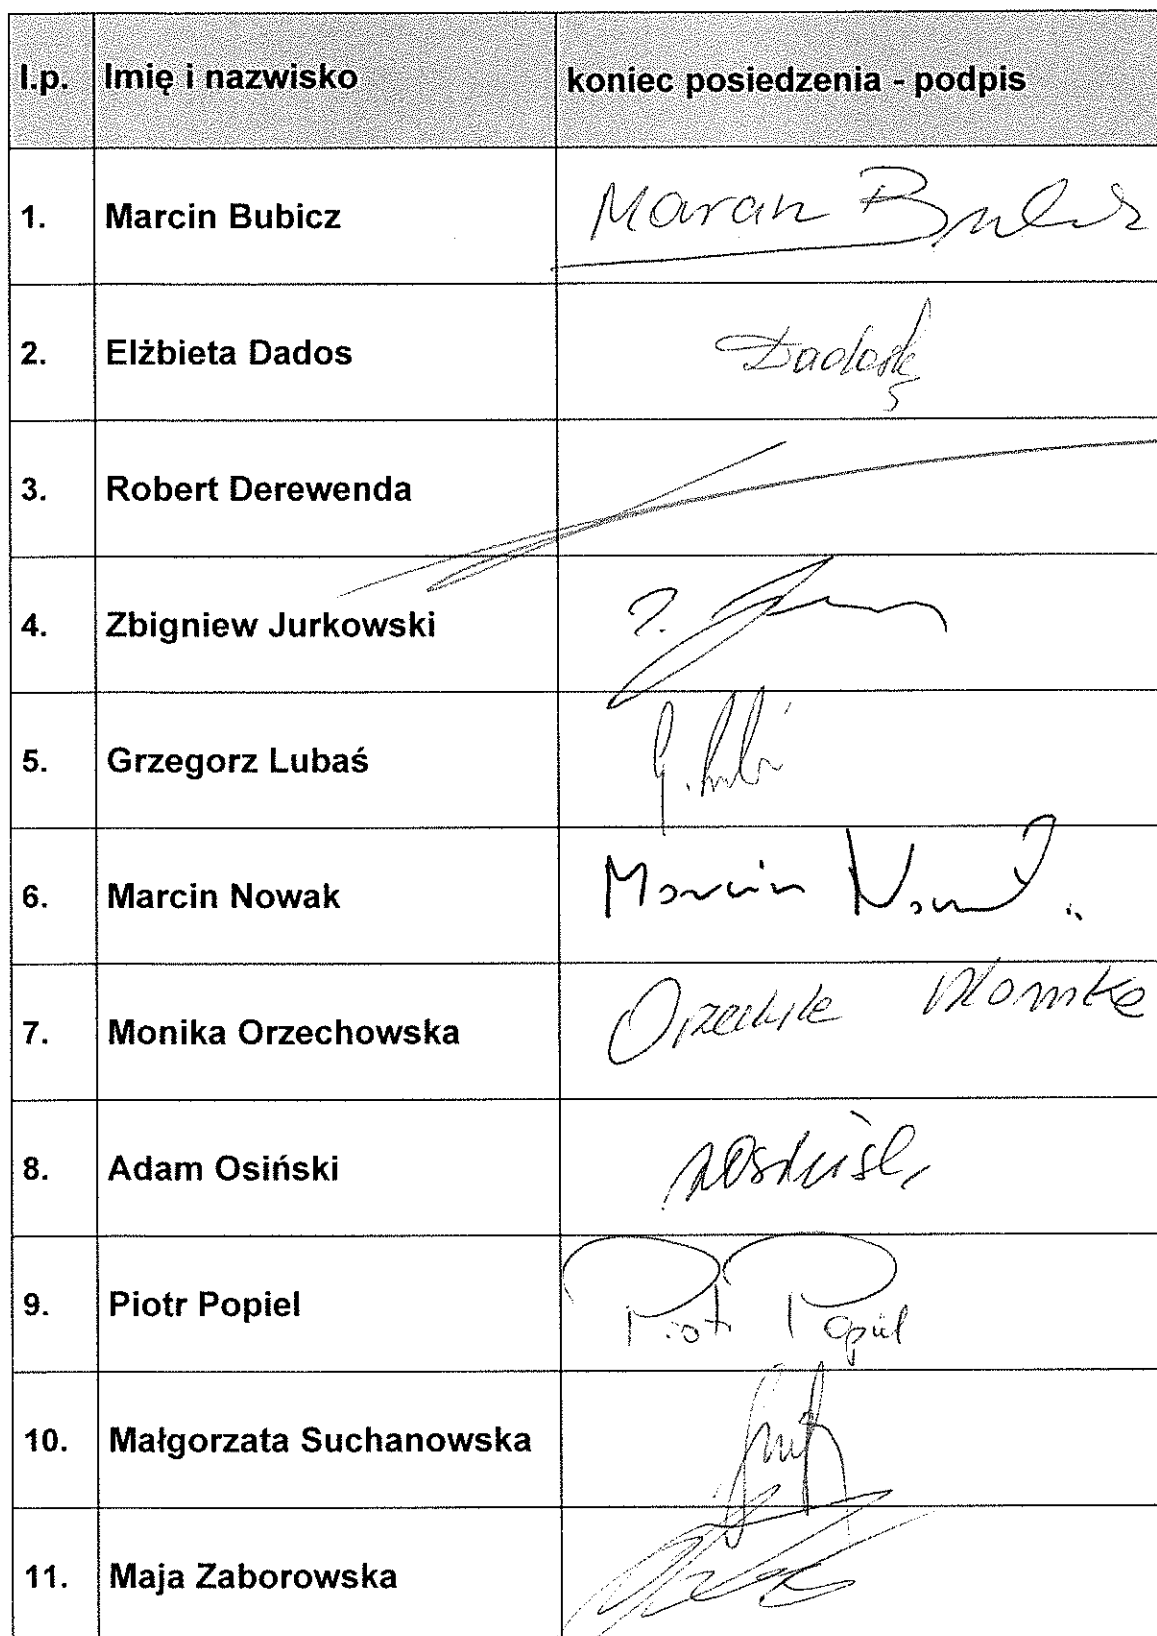 l.p. Imię i nazwisko koniec posiedzenia - podpis
1. Marcin Bubicz Marcin Bubicz
2. Elżbieta Dados
3. Robert Derewenda
4. Zbigniew Jurkowski
5. Grzegorz Lubaś
6. Marcin Nowak Marcin Nowak
7. Monika Orzechowska Monika
8. Adam Osiński
9. Piotr Popiel Piotr Popiel
10. Małgorzata Suchanowska
11. Maja Zaborowska